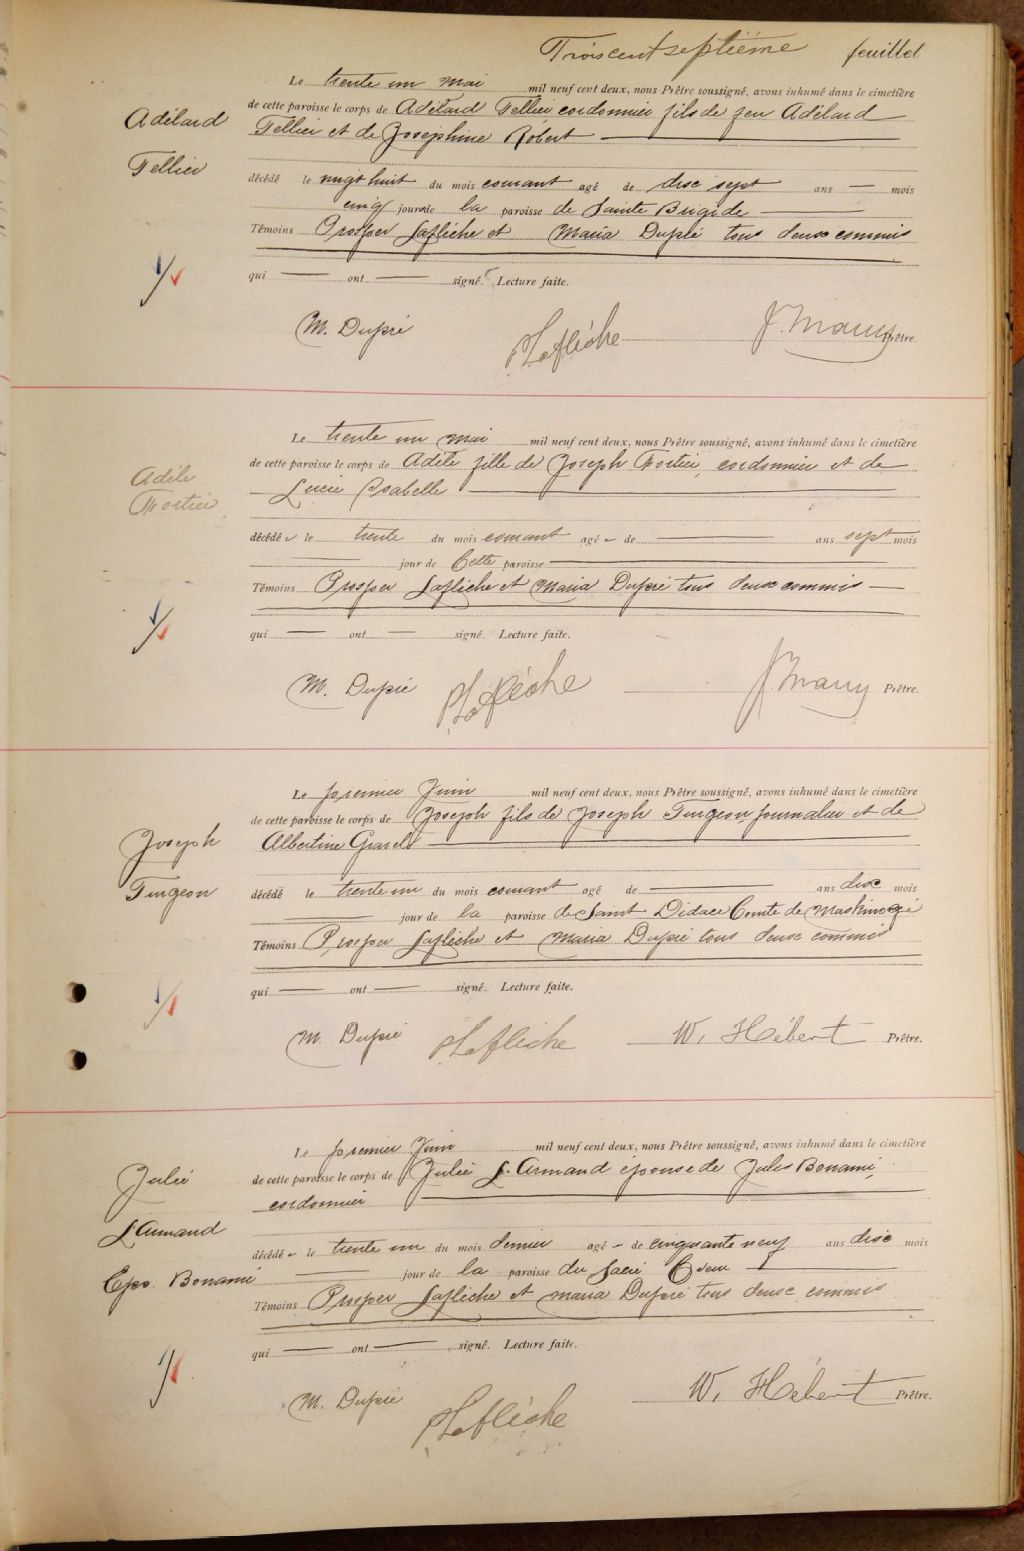 Trois cent septième feuillet
Le trente un mai mil neuf cent deux, nous Prêtre soussigné, avons inhumé dans le cimetière
Adélard
de cette paroisse le corps de Adélard Tellier cordonnier fils de feu Adélard
Tellier et de Josephine Robert
Tellier
décédé le vingt huit du mois courant agé de dix sept ans — mois
cinq jours de la paroisse de Sainte Brigide
Témoins Prosper Laflèche et Maria Dupré tous deux commis
qui — ont — signé. Lecture faite.
M. Dupré PLaflèche J. Prêtre.
Le trente un mai mil neuf cent deux, nous Prêtre soussigné, avons inhumé dans le cimetière
Adèle
de cette paroisse le corps de Adèle fille de Joseph Fortier, cordonnier et de
Fortier
Lucie Isabelle
décédé e le trente du mois courant agé e de — ans sept mois
— jour de Cette paroisse —
Témoins Prosper Laflèche et Maria Dupré tous deux commis
qui — ont — signé. Lecture faite.
M. Dupré PLaflèche J. Prêtre.
Le premier Juin mil neuf cent deux, nous Prêtre soussigné, avons inhumé dans le cimetière
de cette paroisse le corps de Joseph fils de Joseph Turgeon journalier et de
Joseph
Albertine
Turgeon
décédé le trente un du mois courant agé de — ans dix mois
— jour de la paroisse de Saint Didace Comté de Maskinongé
Témoins Prosper Laflèche et Maria Dupré tous deux commis
qui — ont — signé. Lecture faite.
M. Dupré PLaflèche W. Hébert Prêtre.
Le premier Juin mil neuf cent deux, nous Prêtre soussigné, avons inhumé dans le cimetière
Julie
de cette paroisse le corps de Julie St. Armand épouse de Jules Bonami,
cordonnier
St Armand
décédé e le trente un du mois dernier agé e de cinquante neuf ans dix mois
Eps. Bonami
— jour de la paroisse du Sacré Coeur
Témoins Prosper Laflèche et Maria Dupré tous deux commis
qui — ont — signé. Lecture faite.
M. Dupré PLaflèche W. Hébert Prêtre.